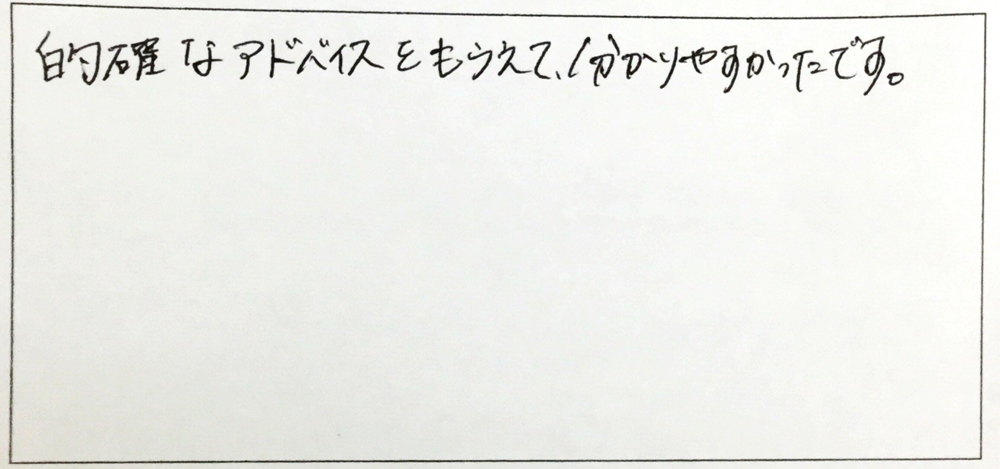 的確なアドバイスをもらえて、分かりやすかったです。